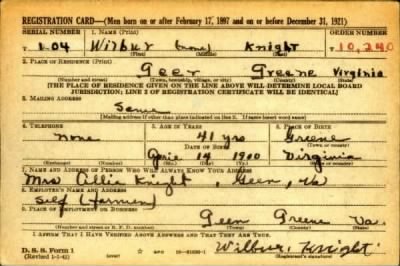 REGISTRATION CARD—(Men born on or after February 17, 1897 and on or before December 31, 1921)
SERIAL NUMBER 1. NAME (Print) ORDER NUMBER
T 1-04 Wilbur (none) Knight 10,240
(First) (Middle) (Last)
2. PLACE OF RESIDENCE (Print)
Geer Greene Virginia
(Number and street) (Town, township, village, or city) (County) (State)
[THE PLACE OF RESIDENCE GIVEN ON THE LINE ABOVE WILL DETERMINE LOCAL BOARD
JURISDICTION; LINE 2 OF REGISTRATION CERTIFICATE WILL BE IDENTICAL]
3. MAILING ADDRESS
Same
[Mailing address if other than place indicated on line 2. If same insert word same]
4. TELEPHONE 5. AGE IN YEARS 6. PLACE OF BIRTH
none 41 yrs Greene
DATE OF BIRTH (Town or county)
14 1900 Virginia
(Exchange) (Number) (Mo.) (Day) (Yr.) (State or country)
7. NAME AND ADDRESS OF PERSON WHO WILL ALWAYS KNOW YOUR ADDRESS
Mrs Ollie Knight, Geer, Va
8. EMPLOYER'S NAME AND ADDRESS
Self (Farmer)
9. PLACE OF EMPLOYMENT OR BUSINESS
Geer Greene Va.
(Number and street or R. F. D. number) (Town) (County) (State)
I AFFIRM THAT I HAVE VERIFIED ABOVE ANSWERS AND THAT THEY ARE TRUE.
D. S. S. Form 1 Wilbur Knight
(Revised 1-1-42) (over) (Registrant's signature)